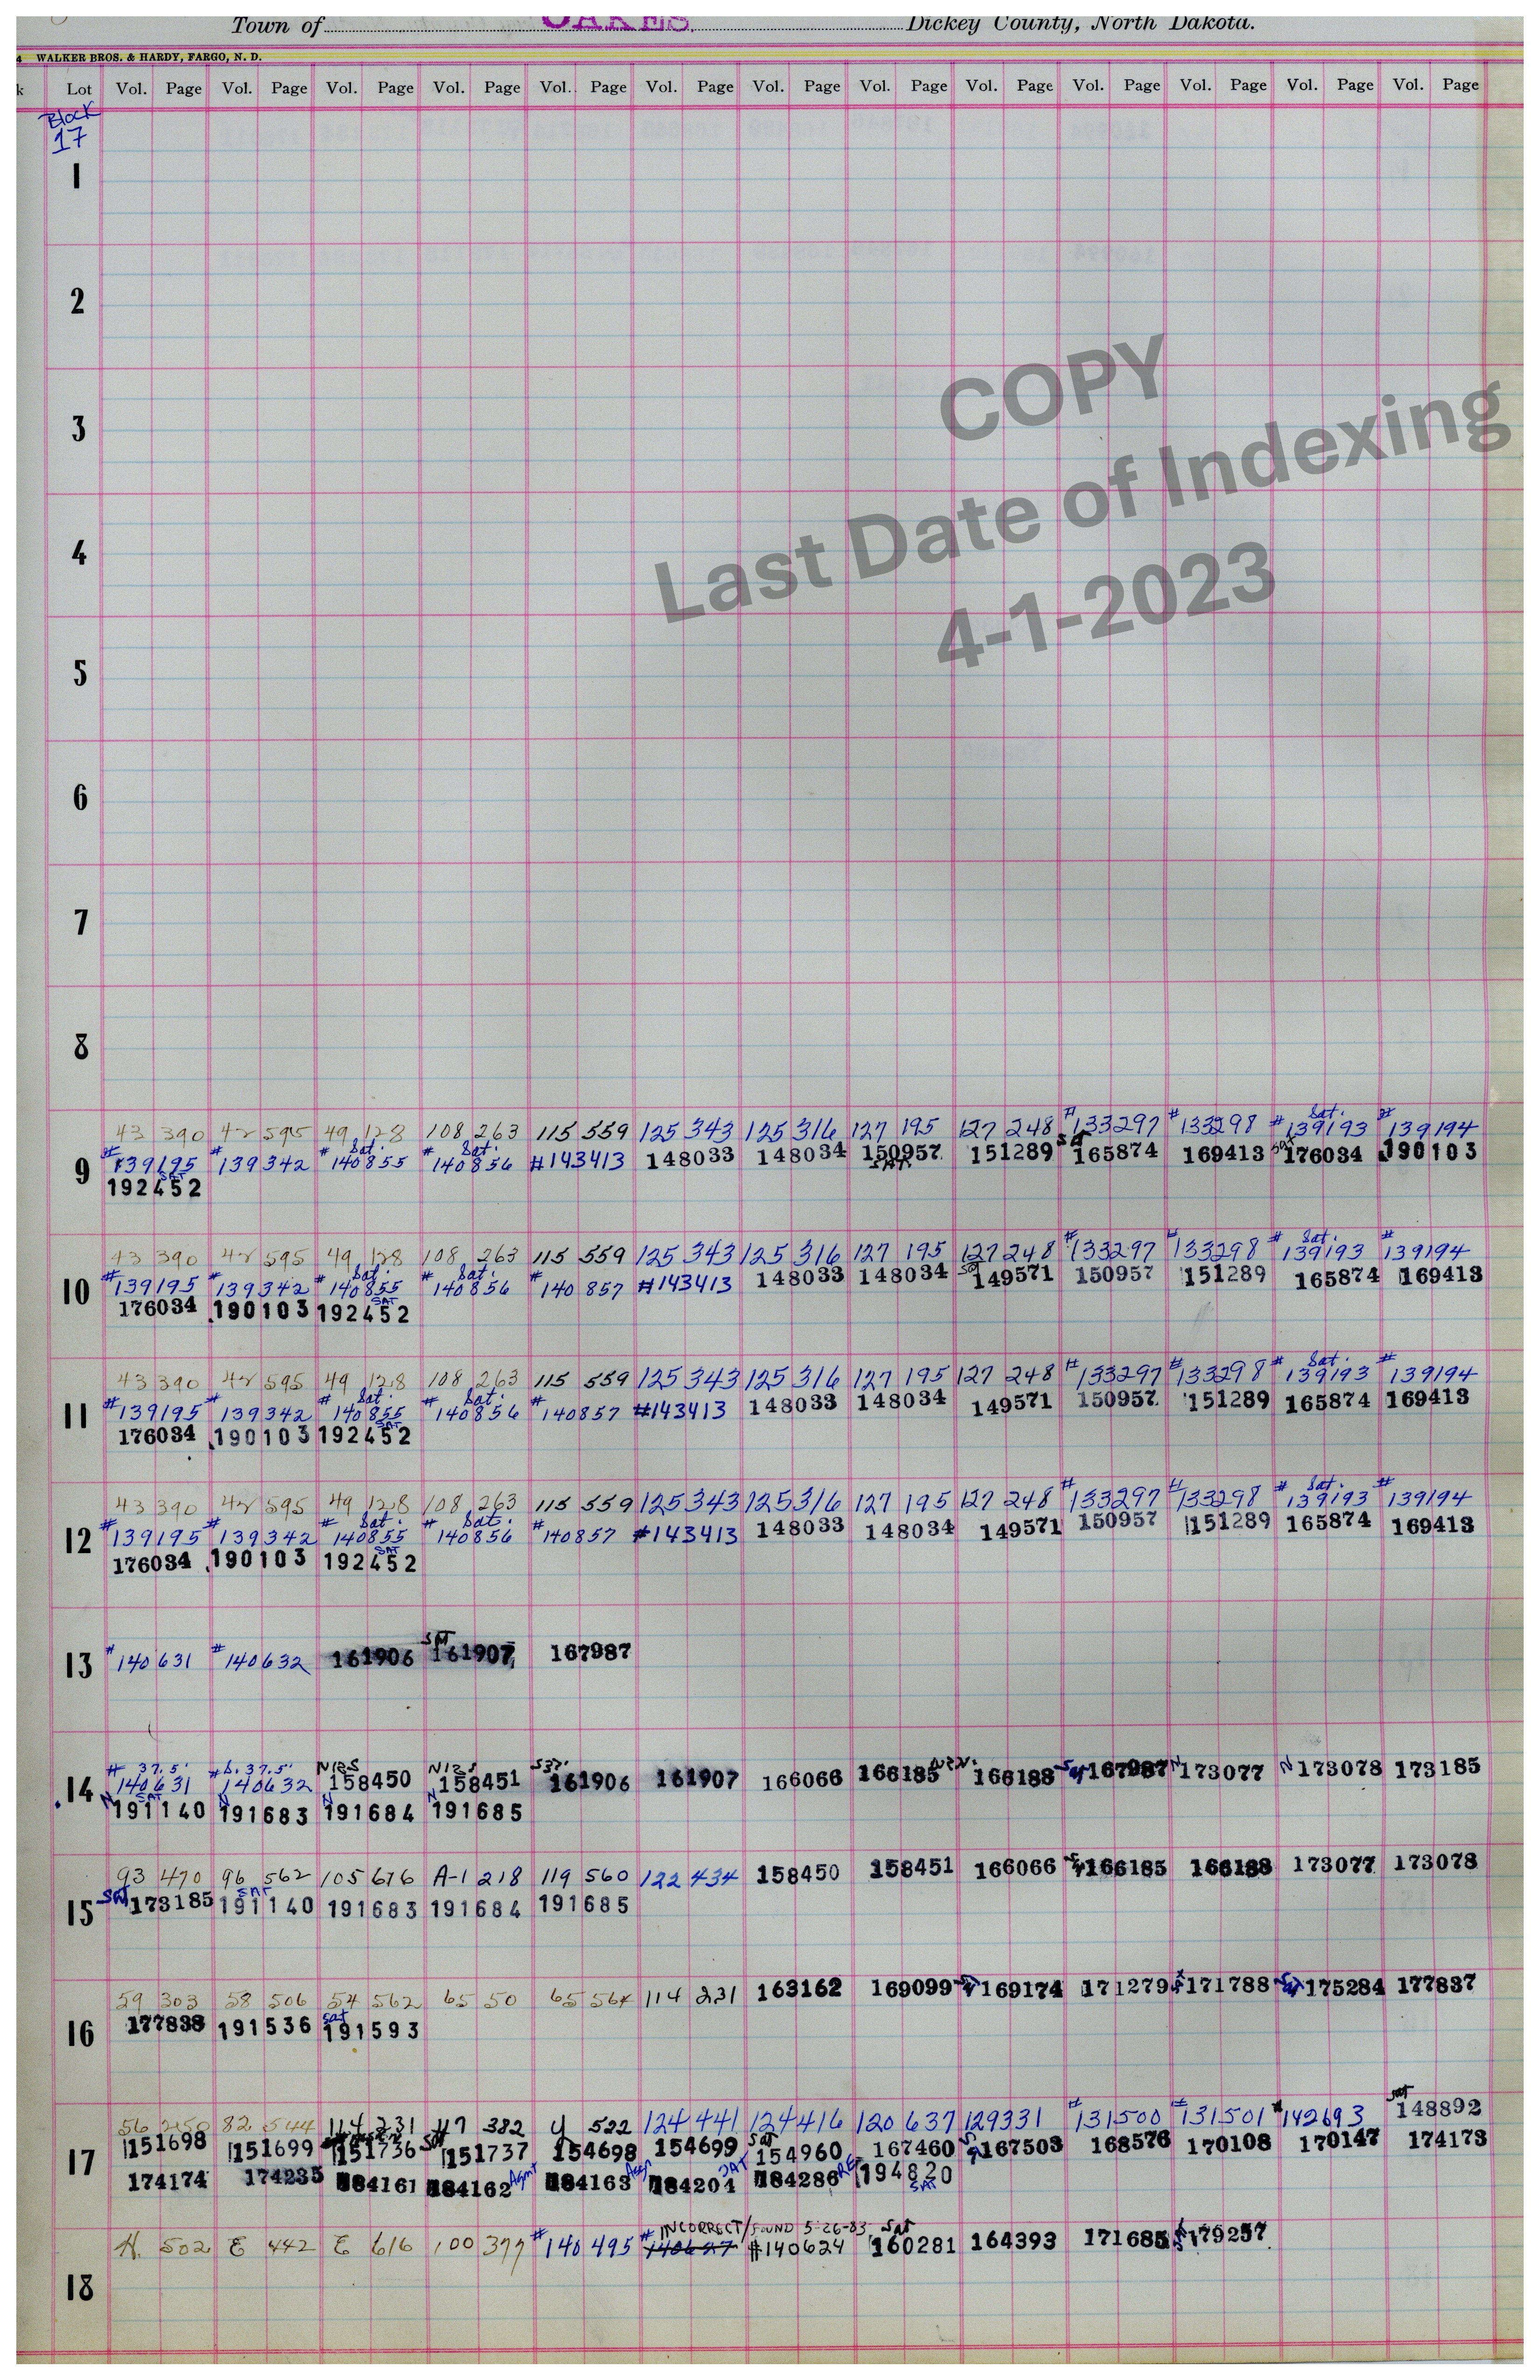 Town of OAKES. Dickey County, North Dakota.
4 WALKER BROS. & HARDY, FARGO, N. D.
k Lot Vol. Page Vol. Page Vol. Page Vol. Page Vol. Page Vol. Page Vol. Page Vol. Page Vol. Page Vol. Page Vol. Page Vol. Page Vol. Page
Block
17
1
2
COPY
3
Last Date of Indexing
4
4-1-2023
5
6
7
8
43 390 42 595 49 128 108 263 115 559 125 343 125 316 127 195 127 248 #133297 #133298 #Sat. 139193 #139194
9 #139195 #139342 #Sat. 140855 #Sat. 140856 #143413 148033 148034 150957 SAT 151289 SAT 165874 169413 Sat 176034 190103
192452 SAT
43 390 42 595 49 128 108 263 115 559 125 343 125 316 127 195 127 248 #133297 #133298 #Sat. 139193 #139194
10 #139195 #139342 #Sat. 140855 #Sat. 140856 #140857 #143413 148033 148034 149571 150957 151289 165874 169413
176034 190103 192452 SAT
43 390 42 595 49 128 108 263 115 559 125 343 125 316 127 195 127 248 #133297 #133298 #Sat. 139193 #139194
11 #139195 #139342 #Sat. 140855 #Sat. 140856 #140857 #143413 148033 148034 149571 150957 151289 165874 169413
176034 190103 192452 SAT
43 390 42 595 49 128 108 263 115 559 125 343 125 316 127 195 127 248 #133297 #133298 #Sat. 139193 #139194
12 #139195 #139342 #Sat. 140855 #Sat. 140856 #140857 #143413 148033 148034 149571 150957 151289 165874 169413
176034 190103 192452 SAT
13 #140631 #140632 161906 SAT 161907 167987
# 37.5' #S. 37.5' N12.5 N12.5 S37.
14 N 140631 140632 158450 158451 161906 161907 166066 166185 166188 167987 N 173077 N 173078 173185
N 191140 SAT N 191683 N 191684 N 191685
93 470 96 562 105 676 A-1 218 119 560 122 434 158450 158451 166066 166185 166188 173077 173078
15 SAT 173185 191140 SAT 191683 191684 191685
59 303 58 506 54 562 65 50 65 564 114 231 163162 169099 169174 171279 171788 175284 177837
16 177838 191536 Sat 191593
56 250 82 544 114 231 117 382 Y 522 124 441 124 416 120 637 129 331 #131500 #131501 #142693 Sat 148892
17 151698 151699 151736 Sat 151737 154698 154699 Sat 154960 167460 167503 168576 170108 170147 174173
174174 174235 184161 184162 Agmt 184163 Assn 184204 SAT 184286 RE 194820 SAT
INCORRECT/FOUND 5-26-83 Sat
H. 502 E 442 E 616 100 377 #140495 #140627 #140624 160281 164393 171685 179257
18